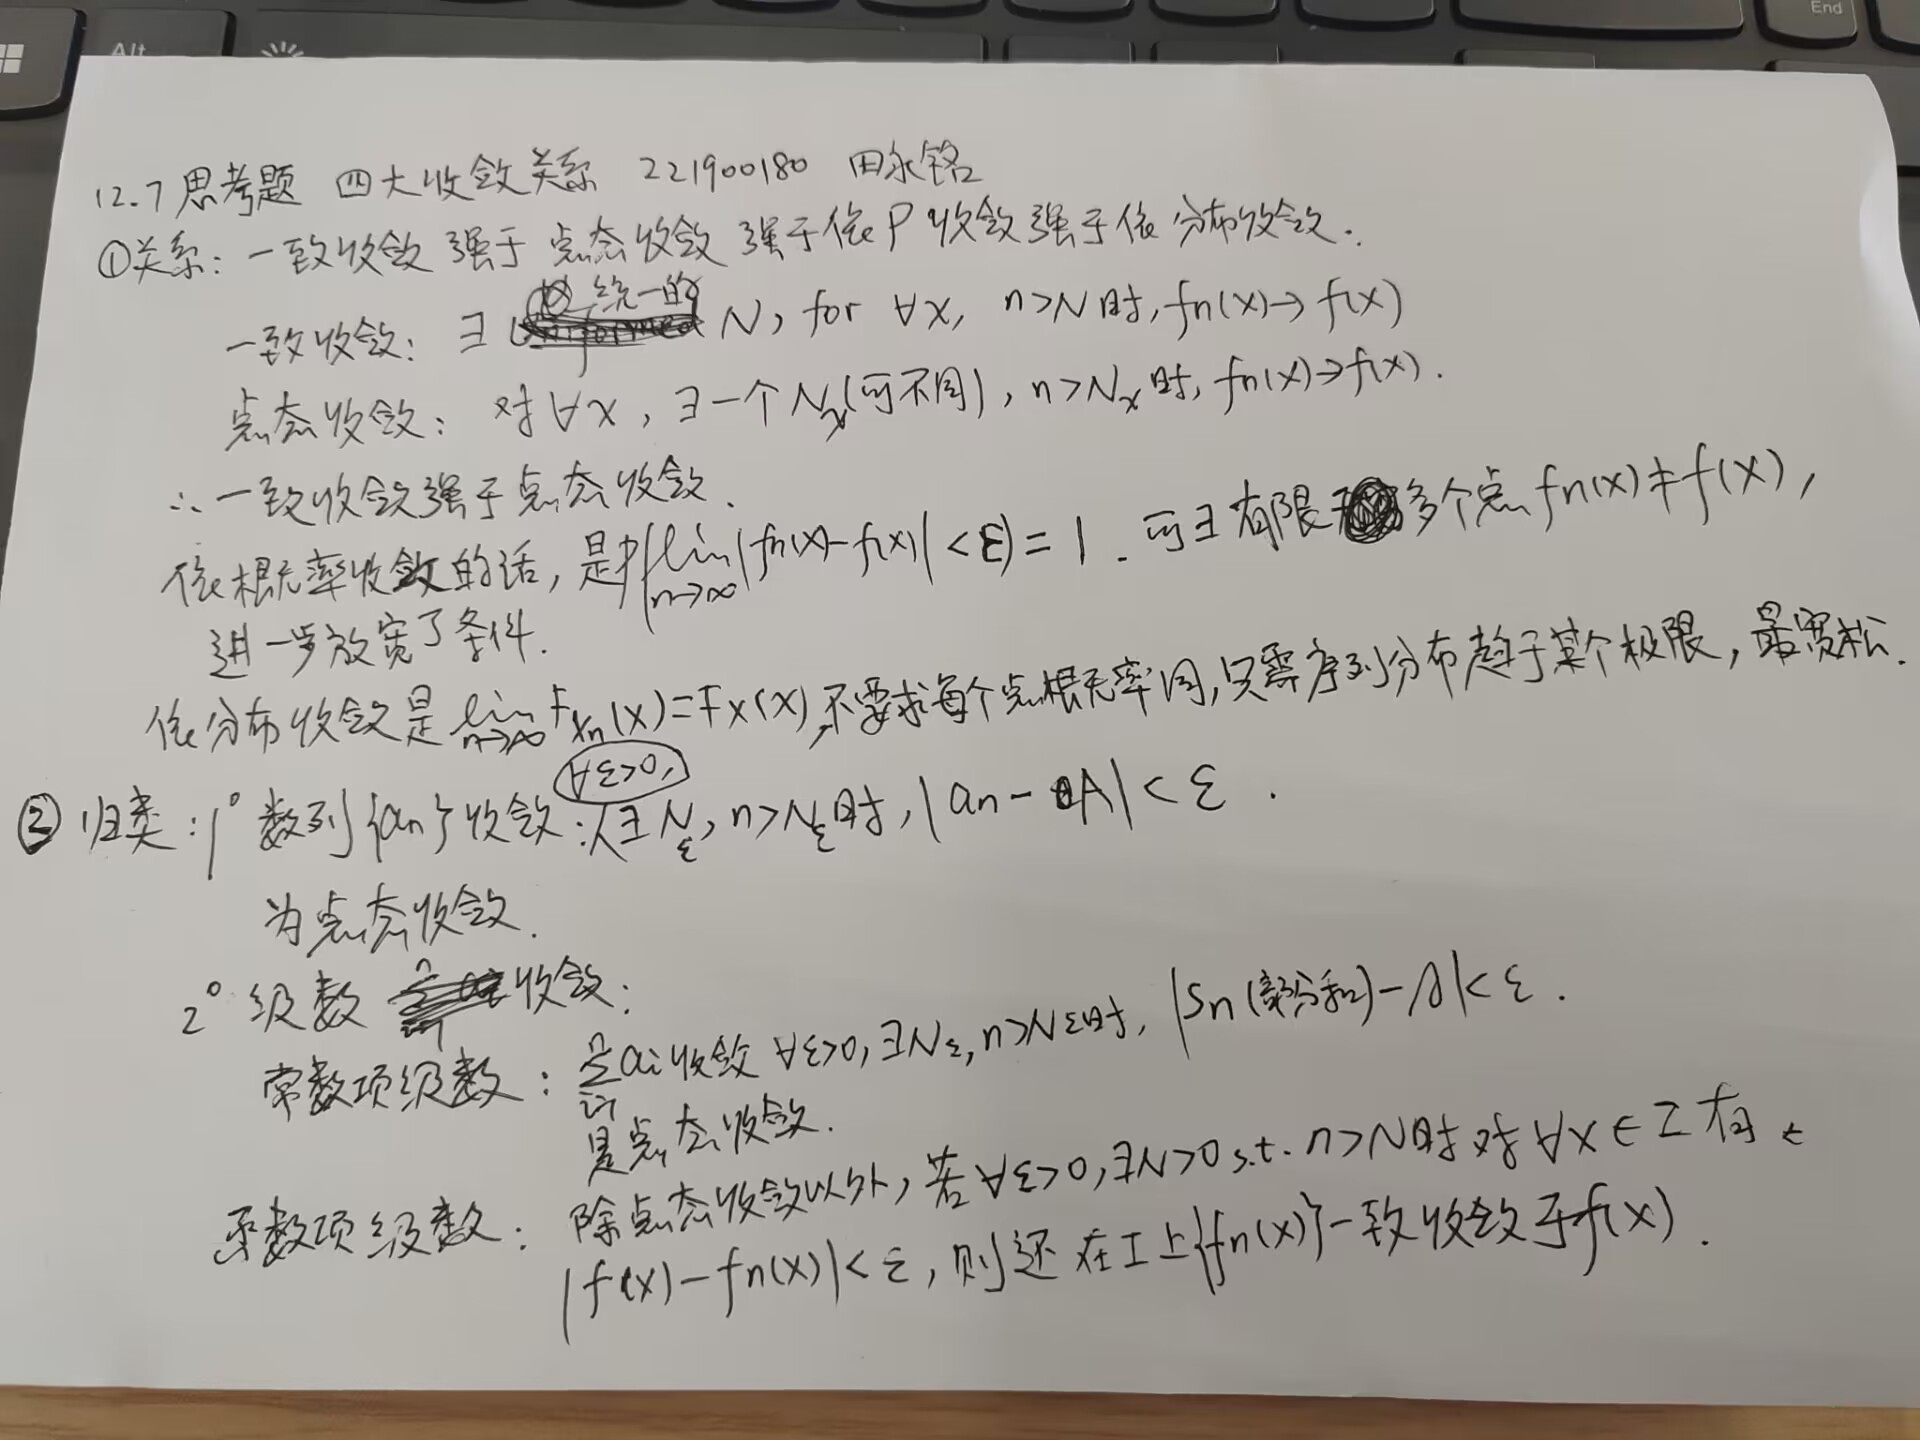 Alt
End
12.7思考题 四大收敛关系 221900180 田永铭
①关系：一致收敛 强于 点态收敛 强于依P收敛强于依分布收敛.
一致收敛：∃ 统一的 N, for ∀x, n>N时, fn(x)→f(x)
点态收敛：对∀x, ∃一个Nx(可不同), n>Nx时, fn(x)→f(x).
∴一致收敛强于点态收敛.
依概率收敛的话, 是P(lim n→∞ |fn(x)-f(x)|<ε)=1. 可∃有限多个点fn(x)≠f(x),
进一步放宽了条件.
依分布收敛是 lim n→∞ FXn(x)=FX(x), 不要求每个点概率同, 只需序列分布趋于某个极限, 最宽松.
②归类：1° 数列{an}收敛：∀ε>0, ∃Nε, n>Nε时, |an-A|<ε.
为点态收敛.
2° 级数收敛：
常数项级数：n Σ i=1 ai收敛 ∀ε>0, ∃Nε, n>Nε时, |Sn(部分和)-A|<ε.
是点态收敛.
函数项级数：除点态收敛以外, 若∀ε>0, ∃N>0 s.t. n>N时对∀x∈I有
|f(x)-fn(x)|<ε, 则还在I上{fn(x)}一致收敛于f(x).